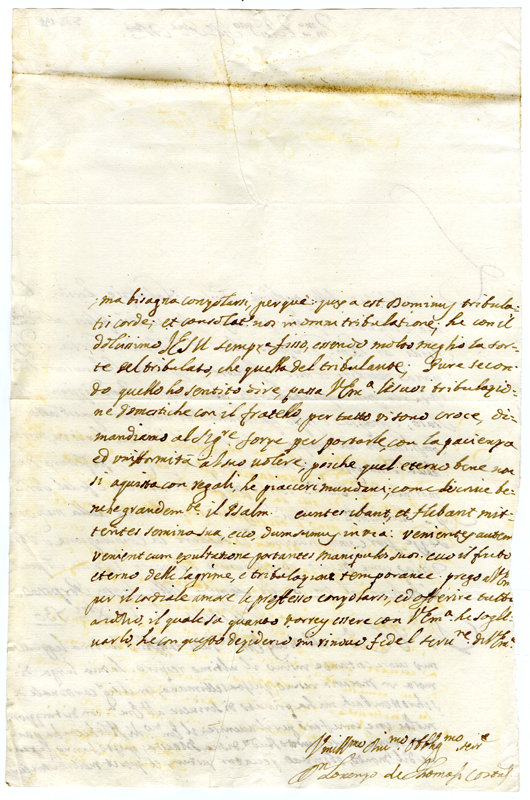 ma bisogna consolarsi, perque juxta est Dominus tribula
tis corde, et consolat nos in omni tribulatione, he con il
dolcissimo JESU sempre fisso, essendo molto meglio la sor
te del tribulato, che quella del tribulante; Pure secon
do quello ho sentito dire, passa V. Em.ª le sue tribulazio
ne domestiche con il fratelo, per tutto vi sono croce, di
mandiamo al Sig.re forze per portarle, con la pacienza
ed uniformità al suo volere, poiche quel eterno bene non
si aquista con regali, he piaceri mundani; come descrive be
ne he grandem.te il Psalm. euntes ibant, et flebant mit
tentes semina sua, ecco dum sumus in via: venientes autem
venient cum exultazione portantes manipulos suos. ecco il frutto
eterno delle lagrime, e tribulazione temporanee. prego a V. Em.
per il cordiale amore le professo consolarsi, ed offerire tutto
a dio, il quale sa quanto vorrey essere con V. Em.ª he solle
varlo, he con questo desiderio mi rinovo fidel serv.re di V. Em.ª
Umiliss.mo Div.mo Obblig.mo ser.e
Lorenzo de Thomasi